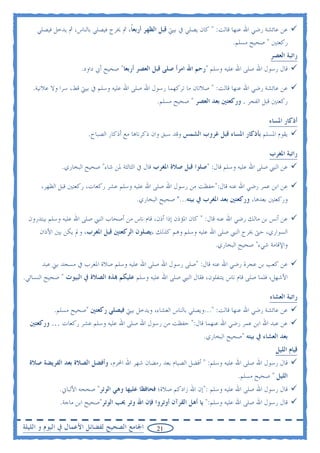 ✓ عن عائشة رضي الله عنها قالت: " كان يصلي في بيتي قبل الظهر أربعاً، ثم يخرج فيصلي بالناس، ثم يدخل فيصلي
ركعتين " صحيح مسلم.
راتبة العصر
✓ قال رسول الله صلى الله عليه وسلم "رحم الله امرأ صلى قبل العصر أربعا" صحيح أبي داود.
✓ عن عائشة رضي الله عنها قالت: " صلاتان ما تركهما رسول الله صلى الله عليه وسلم في بيتي قط، سرا ولا علانية.
ركعتين قبل الفجر . وركعتين بعد العصر " صحيح مسلم.
أذكار المساء
✓ يقوم المسلم بأذكار المساء قبل غروب الشمس وقد سبق وان ذكرناها مع أذكار الصباح.
راتبة المغرب
✓ عن النبي صلى الله عليه وسلم قال: "صلوا قبل صلاة المغرب قال في الثالثة لمن شاء" صحيح البخاري.
✓ عن ابن عمر رضي الله عنه قال:"حفظت من رسول الله صلى الله عليه وسلم عشر ركعات، ركعتين قبل الظهر،
وركعتين بعدها، وركعتين بعد المغرب في بيته .." صحيح البخاري.
✓ عن أنس بن مالك رضي الله عنه قال: " كان المؤذن إذا أذن، قام ناس من أصحاب النبي صلى الله عليه وسلم يبتدرون
السواري، حتى يخرج النبي صلى الله عليه وسلم وهم كذلك ،يصلون الركعتين قبل المغرب، ولم يكن بين الأذان
والإقامة شيء" صحيح البخاري.
✓ عن كعب بن عجرة رضي الله عنه قال: "صلى رسول الله صلى الله عليه وسلم صلاة المغرب في مسجد بني عبد
الأشهل، فلما صلى قام ناس يتنفلون، فقال النبي صلى الله عليه وسلم عليكم بهذه الصلاة في البيوت " صحيح النسائي.
راتبة العشاء
✓ عن عائشة رضي الله عنها قالت: "...ويصلي بالناس العشاء، ويدخل بيتي فيصلي ركعتين "صحيح مسلم.
✓ عن عبد الله ابن عمر رضي الله عنهما قال:" حفظت من رسول الله صلى الله عليه وسلم عشر ركعات ... وركعتين
بعد العشاء في بيته "صحيح البخاري.
قيام الليل
✓ قال رسول الله صلى الله عليه وسلم: " أفضل الصيام بعد رمضان شهر الله المحرم، وأفضل الصلاة بعد الفريضة صلاة
الليل " صحيح مسلم.
✓ قال رسول الله صلى الله عليه وسلم :"إن الله زادكم صلاة؛ فحافظوا عليها وهي الوتر" صححه الألباني.
✓ قال رسول الله صلى الله عليه وسلم:" يا أهل القرآن أوتروا فإن الله وتر يحب الوتر"صحيح ابن ماجة.
21 الجامع الصحيح لفضائل الأعمال في اليوم و الليلة